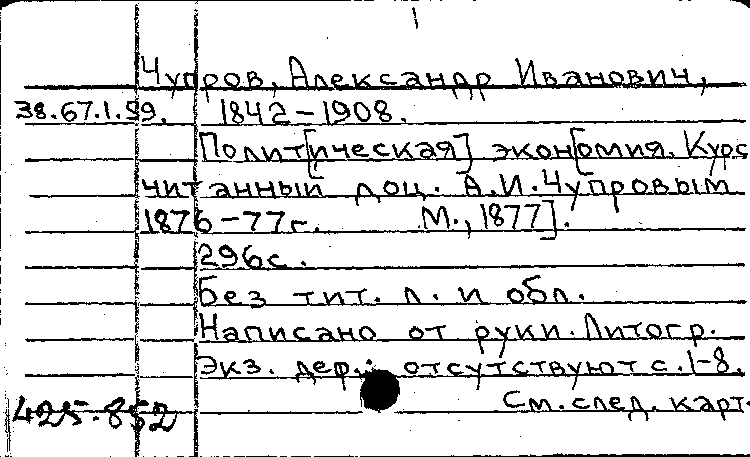 1
Чупров, Александр Иванович,
38.67.1.99. 1842-1908.
Полит[ическая] экон[омия. Курс
читанный доц. А.И.Чупровым
1876-77г. М., 1877].
296с.
Без тит. л. и обл.
Написано от руки. Литогр.
Экз. деф.: отсутствуют с. 1-8.
См. след. карт.
425.852